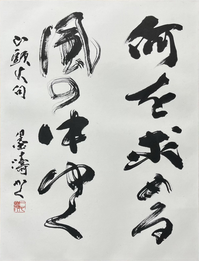 何を求める
風の中ゆく
山頭火句